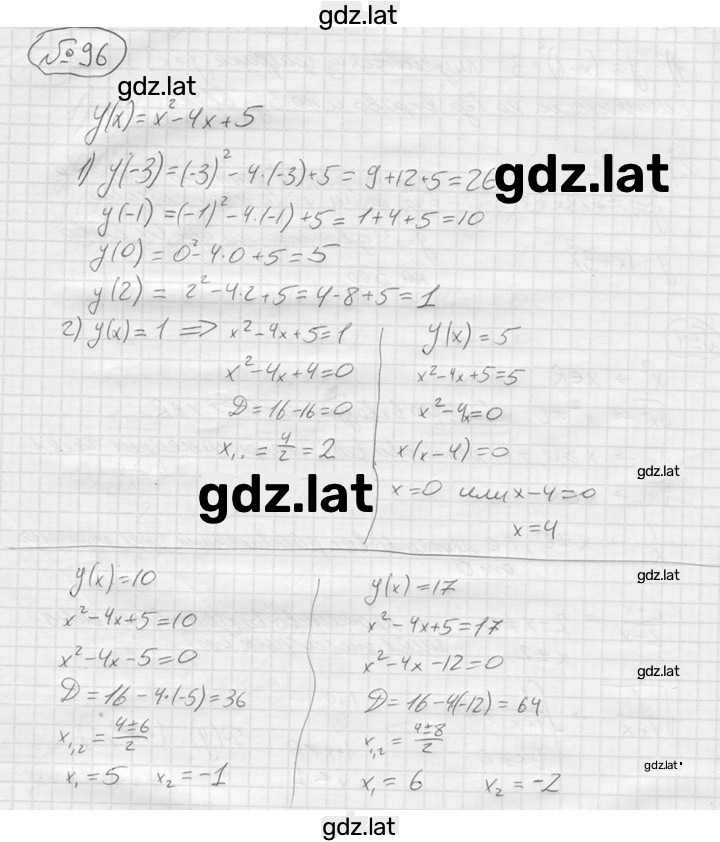 gdz.lat
№96
gdz.lat
y(x)=x²-4x+5
1) y(-3)=(-3)²-4·(-3)+5=9+12+5=26
gdz.lat
y(-1)=(-1)²-4·(-1)+5=1+4+5=10
y(0)=0²-4·0+5=5
y(2)=2²-4·2+5=4-8+5=1
2) y(x)=1 => x²-4x+5=1
x²-4x+4=0
D=16-16=0
x₁,.=4/2=2
y(x)=5
x²-4x+5=5
x²-4x=0
x(x-4)=0
x=0 или x-4=0
x=4
gdz.lat
gdz.lat
y(x)=10
x²-4x+5=10
x²-4x-5=0
D=16-4·(-5)=36
x₁,₂=(4±6)/2
x₁=5 x₂=-1
y(x)=17
x²-4x+5=17
x²-4x-12=0
D=16-4(-12)=64
x₁,₂=(4±8)/2
x₁=6 x₂=-2
gdz.lat
gdz.lat
gdz.lat
gdz.lat